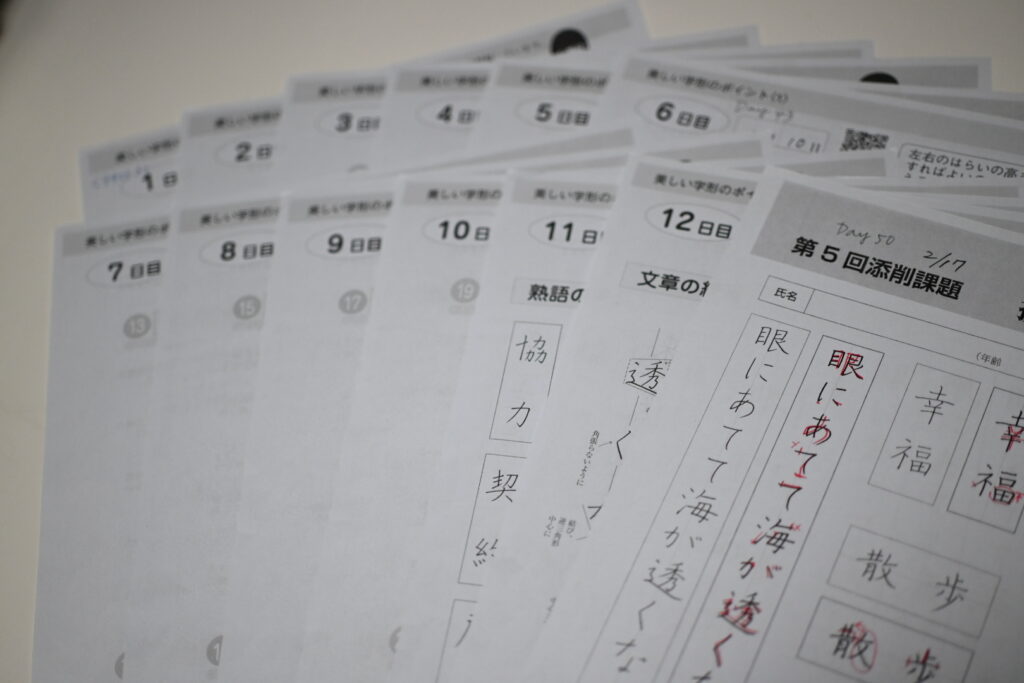 美しい字形の
1日
美しい字形の
2日
美しい字形の
3日目
美しい字形の
4日
美しい字形のポ
5日目
美しい字形のポイント(1)
6日目
左右のはらいの高
すればよい
美しい字形のポ
7日目
13
美しい字形の
8日目
15
美しい字形の
9日目
17
美しい字形の
10日
19
美しい字形のポ
11日
熟語の
協力
契
美しい字形のポイ
12日目
文章の
透く
角張らないように
結び、
逆三角形
中心に
Day 50
2/17
第5回添削課題
氏名
(年齢
眼にあてて海が透くな
眼にあてて海が透くな
幸福
幸福
散歩
散歩